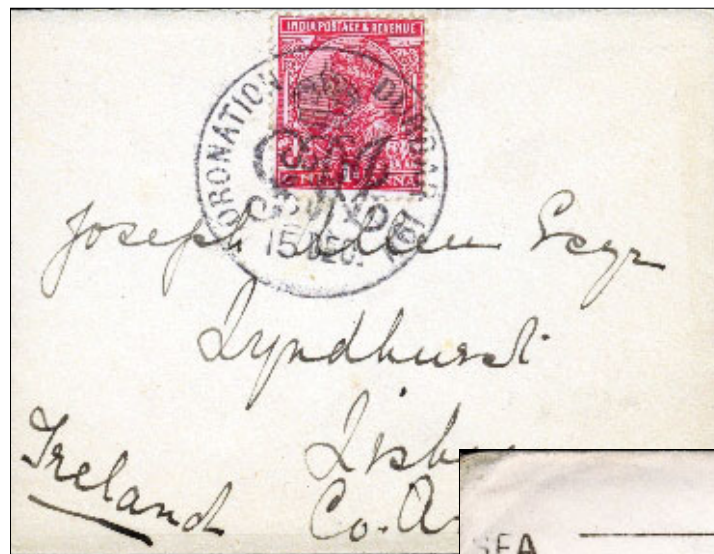 INDIA POSTAGE & REVENUE
CORONATION DURBAR 1911
15 DEC.
Joseph Allen Esqr
Lyndhurst
Ireland
Co. A
SEA